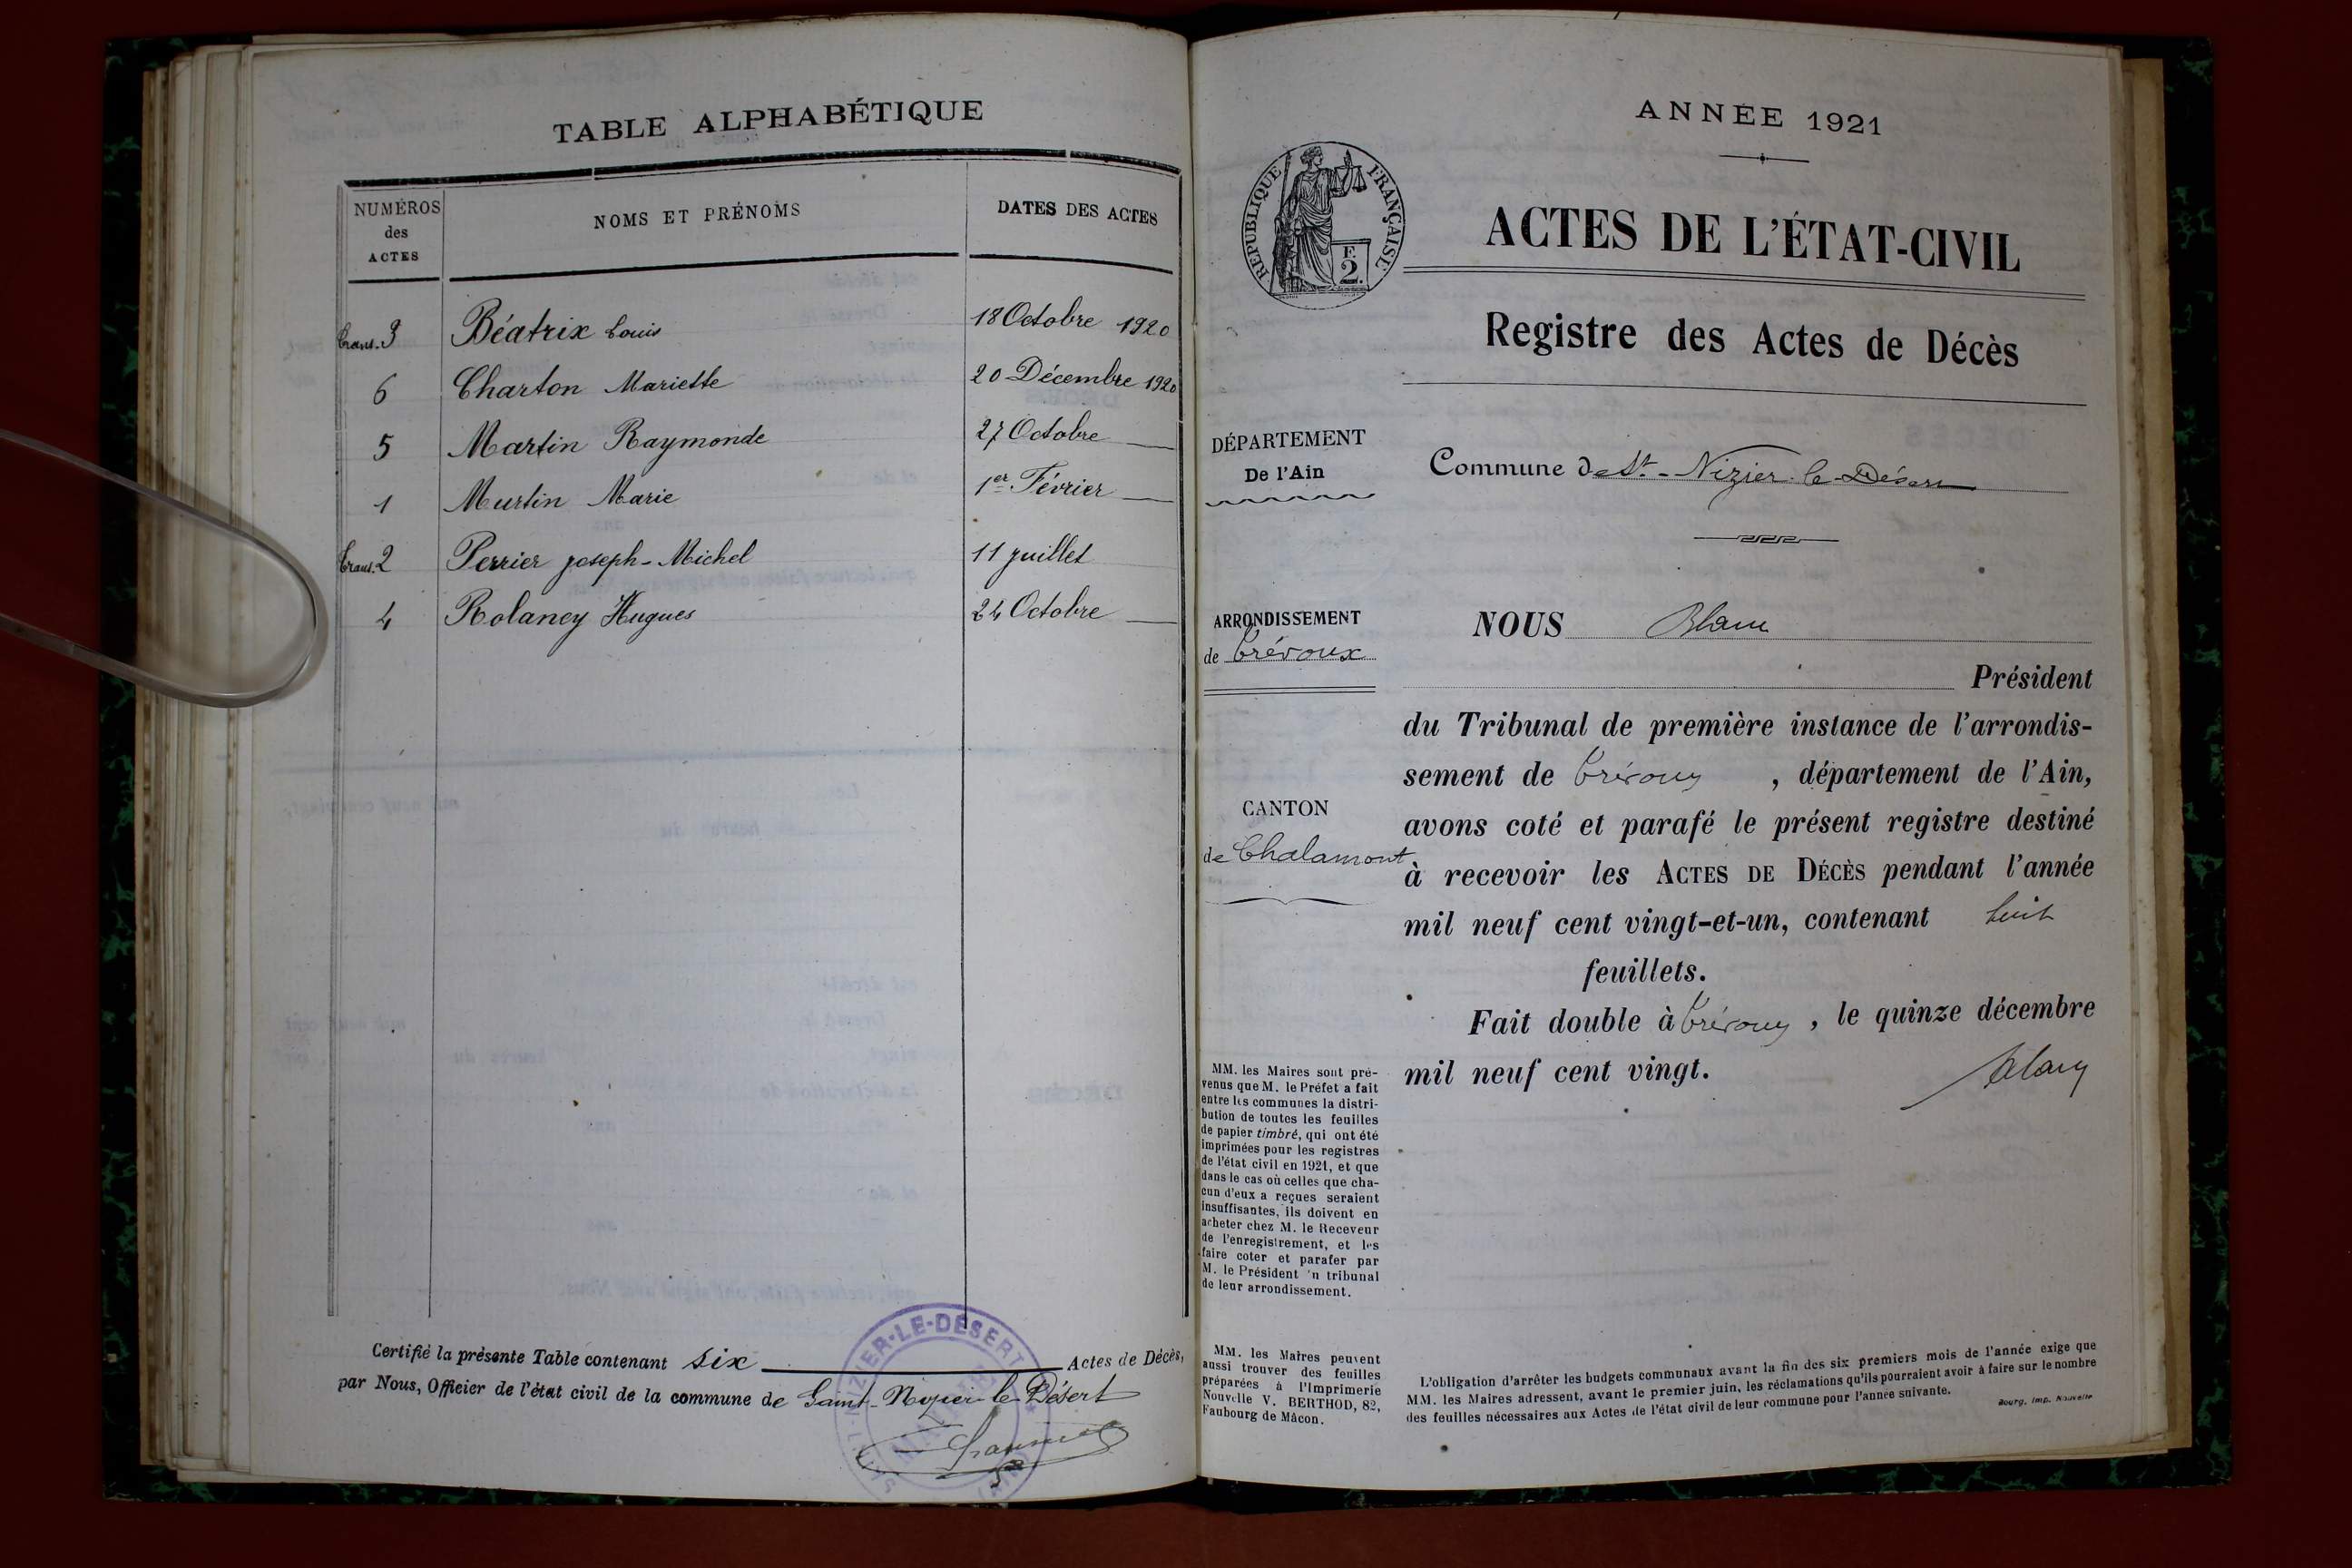 TABLE ALPHABÉTIQUE
NUMÉROS
des
ACTES
NOMS ET PRÉNOMS
DATES DES ACTES
Trans. 3 Béatrix Louis 18 Octobre 1920
6 Charton Mariette 20 Décembre 1920
5 Martin Raymonde 27 Octobre —
1 Murtin Marie 1er Février —
Trans. 2 Perrier Joseph-Michel 11 juillet
4 Rolancy Hugues 24 Octobre —
Certifié la présente Table contenant six Actes de Décès,
par Nous, Officier de l'état civil de la commune de Saint-Nizier-le-Désert
NIZIER-LE-DÉSERT
ANNÉE 1921
RÉPUBLIQUE FRANÇAISE
F.
2.
ACTES DE L'ÉTAT-CIVIL
Registre des Actes de Décès
DÉPARTEMENT
De l'Ain
Commune de St-Nizier-le-Désert
ARRONDISSEMENT
de Trévoux
NOUS Blanc
Président
du Tribunal de première instance de l'arrondis-
sement de Trévoux, département de l'Ain,
avons coté et parafé le présent registre destiné
à recevoir les ACTES DE DÉCÈS pendant l'année
mil neuf cent vingt-et-un, contenant huit
feuillets.
Fait double à Trévoux, le quinze décembre
mil neuf cent vingt.
CANTON
de Chalamont
MM. les Maires sont pré-
venus que M. le Préfet a fait
entre les communes la distri-
bution de toutes les feuilles
de papier timbré, qui ont été
imprimées pour les registres
de l'état civil en 1921, et que
dans le cas où celles que cha-
cun d'eux a reçues seraient
insuffisantes, ils doivent en
acheter chez M. le Receveur
de l'enregistrement, et les
faire coter et parafer par
M. le Président 'n tribunal
de leur arrondissement.
MM. les Maires peuvent
aussi trouver des feuilles
préparées à l'Imprimerie
Nouvelle V. BERTHOD, 82,
Faubourg de Mâcon.
L'obligation d'arrêter les budgets communaux avant la fin des six premiers mois de l'année exige que
MM. les Maires adressent, avant le premier juin, les réclamations qu'ils pourraient avoir à faire sur le nombre
des feuilles nécessaires aux Actes de l'état civil de leur commune pour l'année suivante.
Bourg, Imp. Nouvelle